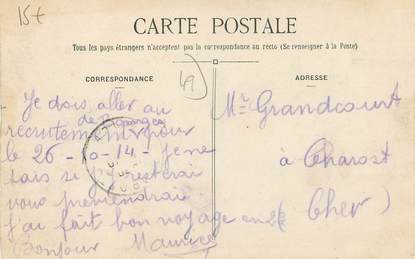 15€
CARTE POSTALE
Tous les pays étrangers n'acceptent pas la correspondance au recto (Se renseigner à la Poste)
CORRESPONDANCE
49
Je dois aller au
recrutement de Bourges pour
le 26-10-14- je ne
sais si j'y resterai
vous previendrai
j'ai fait bon voyage en 2e
Bonjour Maurice
ADRESSE
Mr Grandcourt
à Charost
(Cher)